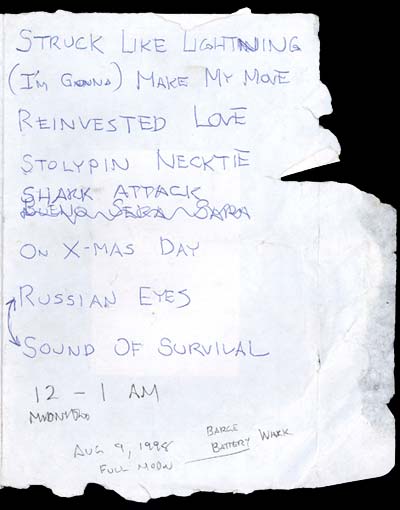 STRUCK LIKE LIGHTNING
(I'M GONNA) MAKE MY MOVE
REINVESTED LOVE
STOLYPIN NECKTIE
SHARK ATTACK
ON X-MAS DAY
RUSSIAN EYES
SOUND OF SURVIVAL
12 - 1 AM
AUG 9, 1998
FULL MOON
BARGE
BATTERY